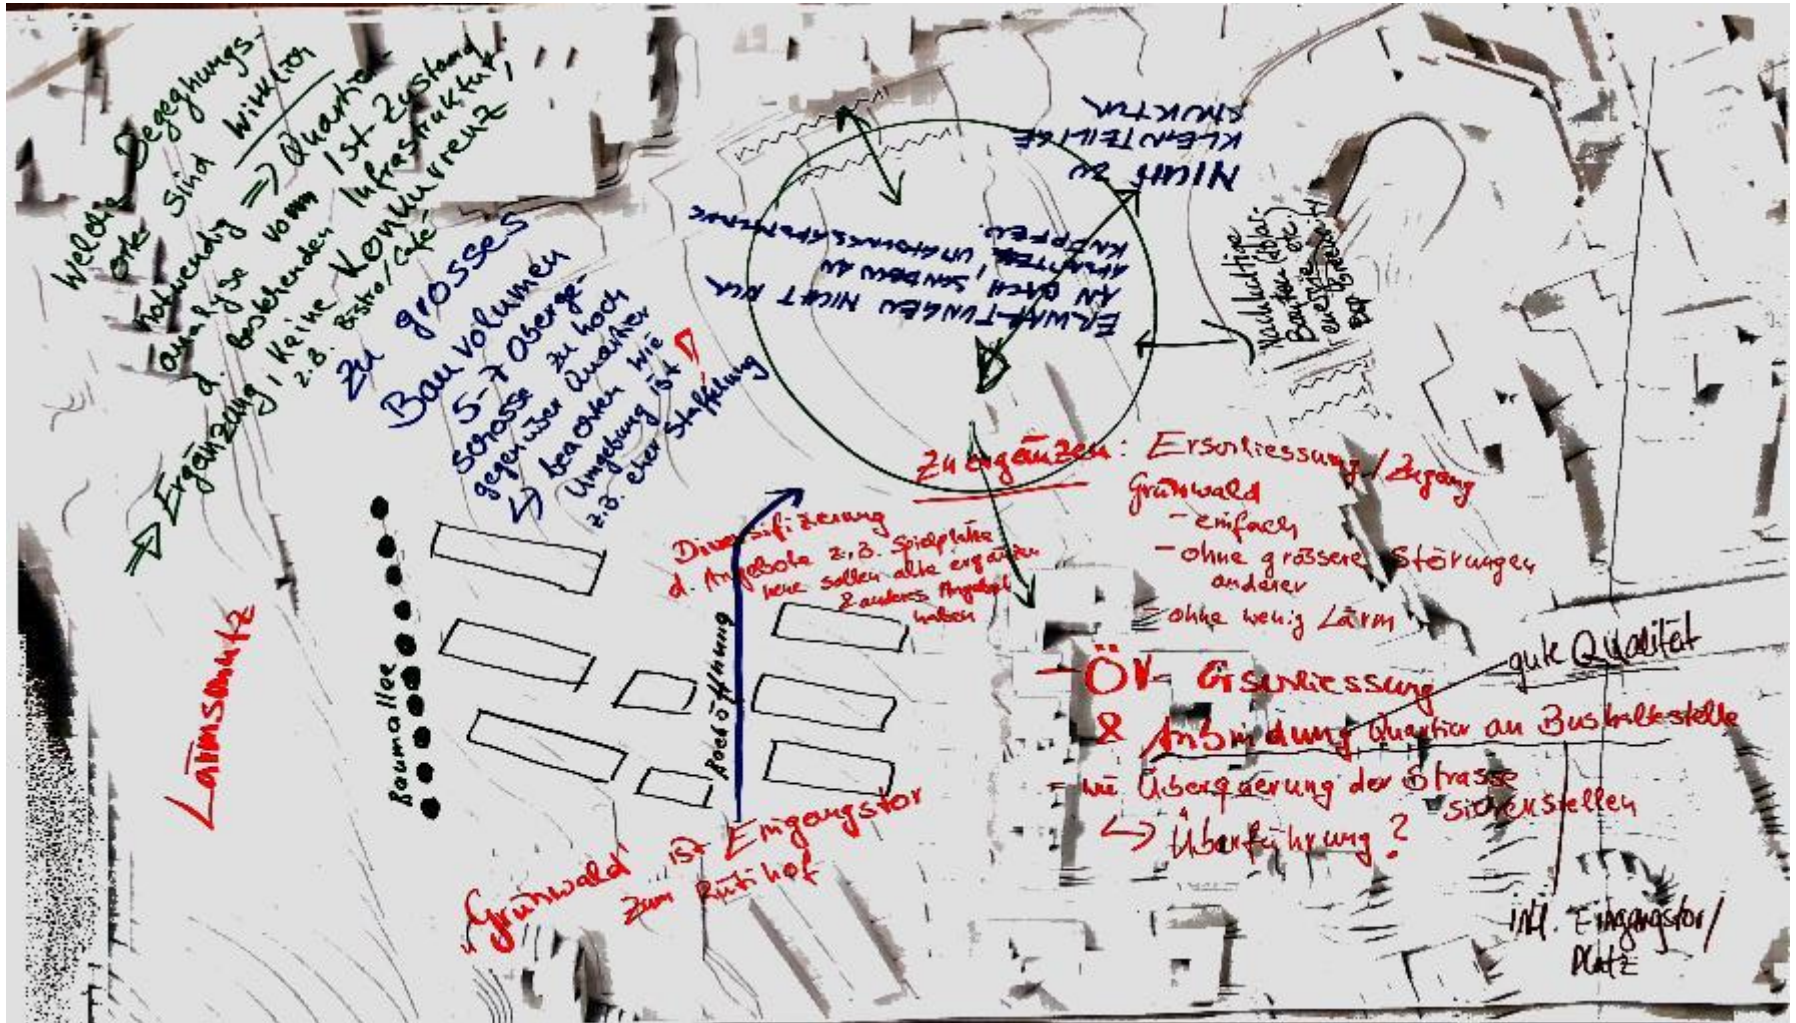 Welche Begegnungs-
orte sind wirklich
notwendig => Quartier-
analyse vom Ist-Zustand
d. bestehenden Infrastruktur,
=> Ergänzung, keine Konkurrenz
z.B. Bistro/Café
zu grosses
Bauvolumen
5-7 Oberge-
schosse zu hoch
gegenüber Quartier
↳ beachten wie
Umgebung ist
z.B. eher Staffelung
!
NICHT ZU
KLEINTEILIGE
STRUKTUR
ERWARTUNGEN NICHT NUR
AN DACH, SONDERN AN
KNÖPFEN.
Nachhaltige
Bauten
energie
Zu ergänzen: Erschliessung/Zugang
Grünwald
- einfach
- ohne grössere Störungen
anderer
- ohne wenig Lärm
- ÖV-Erschliessung
& Anbindung Quartier an Bushaltestelle
gute Qualität
- wie Überquerung der Strasse
sicherstellen
↳ Überführung?
inkl. Eingangstor/
Platz
Diversifizierung
d. Angebote z.B. Spielplätze
neue sollen alte ergänzen
& anderes Angebot
haben
Bachöffnung
Baumallee
Lärmschutz
"Grünwald" ist Eingangstor
zum Rütihof